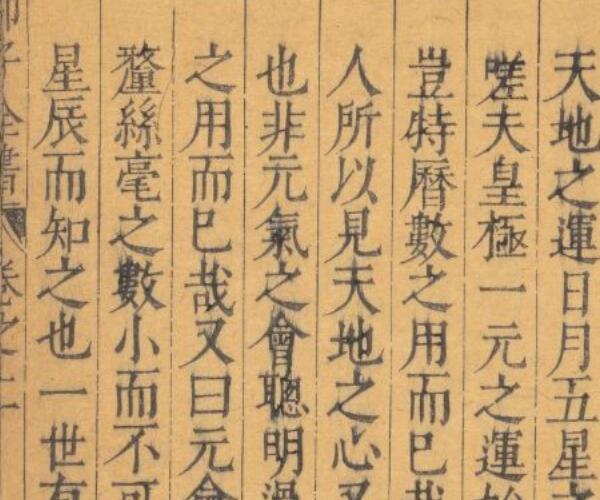 天地之運日月五星之
嗟夫皇極一元之運始
豈特曆數之用而已哉
人所以見天地之心又
也非元氣之會聰明
之用而已哉又曰元會
釐絲毫之數小而不可
星辰而知之也一世有
子全書 卷之二